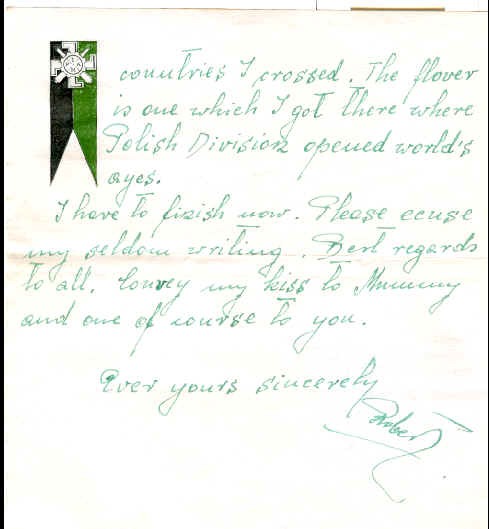 countries I crossed. The flover
is one which I got there where
Polish Division opened world's
ayes.
I have to finish now. Please ecuse
my seldom writing. Best regards
to all. Convey my kiss to Mummy
and one of course to you.
Ever yours sincerely
Robert